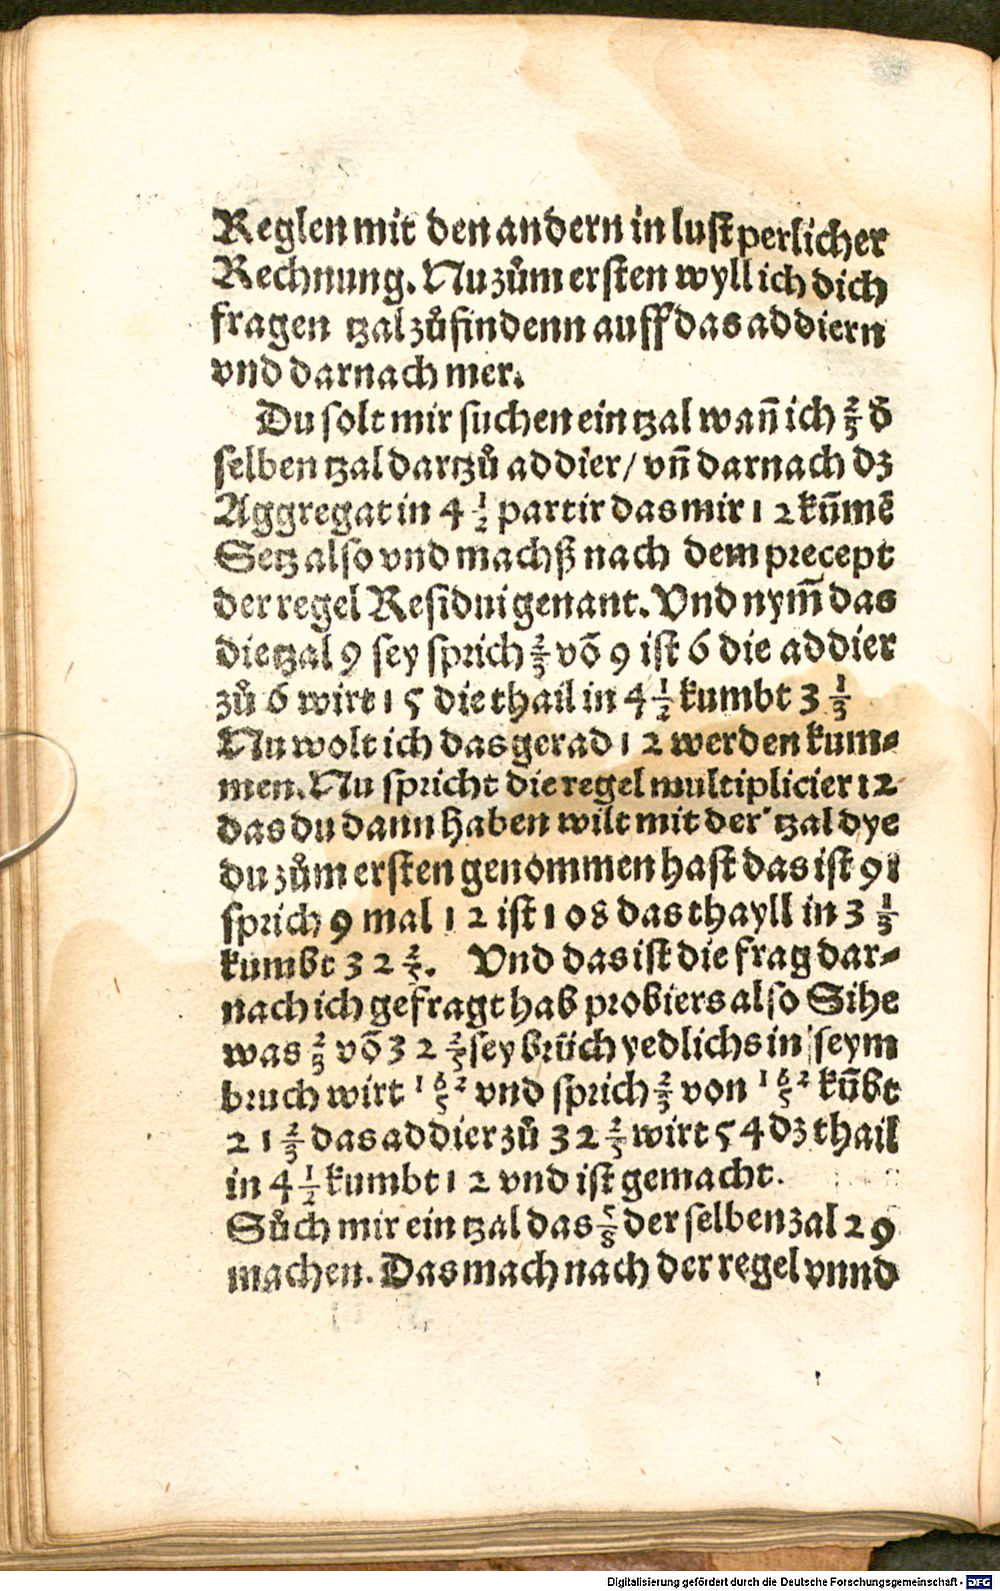 Reglen mit den andern in lustperlicher
Rechnung. Nu zům ersten wyll ich dich
fragen tzal zů findenn auff das addiern
vnd darnach mer.
Du solt mir suchen ein tzal wañ ich 2/3 d̄
selben tzal dartzů addier / vn̄ darnach dz
Aggregat in 4 1/2 partir das mir 12 kūmē
Setz also vnd machß nach dem precept
der regel Residui genant. Vnd nym̄ das
die tzal 9 sey sprich 2/3 vō 9 ist 6 die addier
zů 6 wirt 15 die thail in 4 1/2 kumbt 3 1/3
Nu wolt ich das gerad 12 werden kum⸗
men. Nu spricht die regel multiplicier 12
das du dann haben wilt mit der tzal dye
du zům ersten genommen hast das ist 9:
sprich 9 mal 12 ist 108 das thayll in 3 1/3
kumbt 32 2/5. Vnd das ist die frag dar⸗
nach ich gefragt hab probiers also Sihe
was 2/3 vō 32 2/5 sey brūch yedlichs in seym
bruch wirt 162/5 vnd sprich 2/3 von 162/5 kūbt
21 2/3 das addier zů 32 2/5 wirt 54 dz thail
in 4 1/2 kumbt 12 vnd ist gemacht.
Sůch mir ein tzal das 5/8 der selben zal 29
machen. Das mach nach der regel vnnd
Digitalisierung gefördert durch die Deutsche Forschungsgemeinschaft - DFG